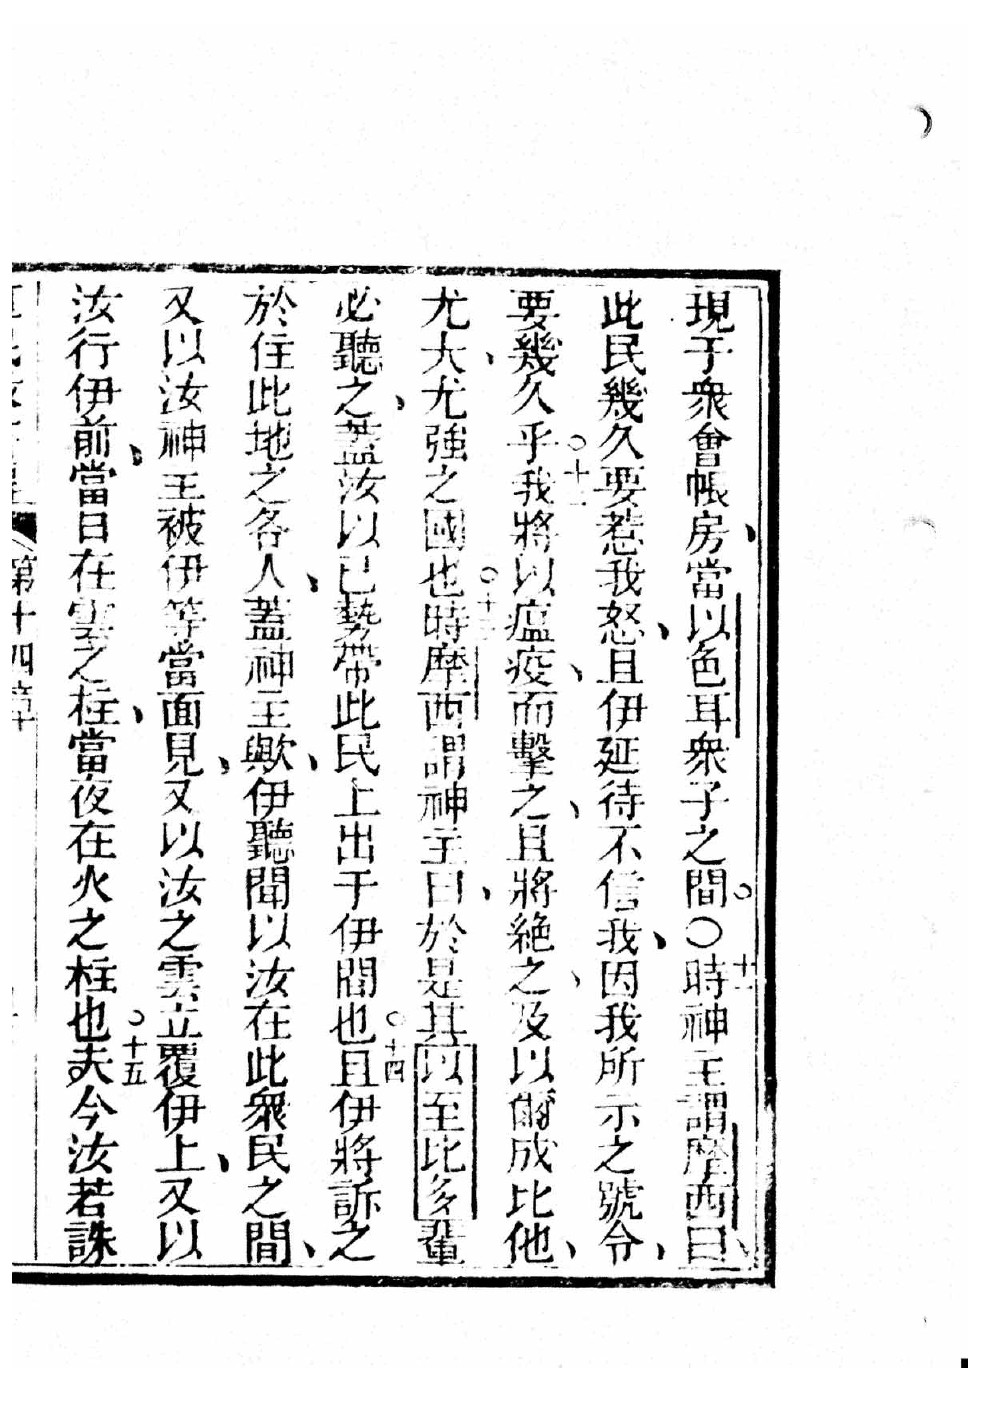 現于衆會帳房、當以色耳衆子之間。〇十一時神主謂摩西曰、
此民幾久要惹我怒、且伊延待不信我、因我所示之號令、
要幾久乎。十二我將以瘟疫、而擊之、且將絕之、及以爾成比他、
尤大、尤強之國也。十三時摩西謂神主曰、於是其以至比多輩
必聽之、蓋汝以己勢帶此民上出于伊間也。十四且伊將訴之
於住此地之各人、蓋神主歟、伊聽聞以汝在此衆民之間、
又以汝神主被伊等當面見、又以汝之雲立覆伊上、又以
汝行伊前、當日在雲之柱、當夜在火之柱也。十五夫今汝若誅
第十四章